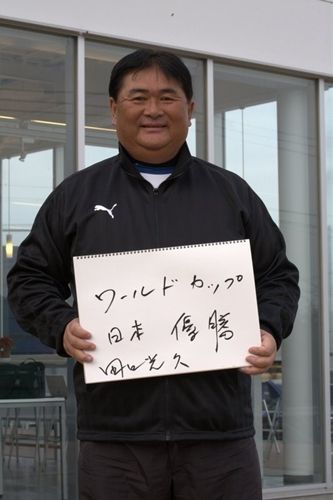 ワールドカップ
日本 優勝
田口光久